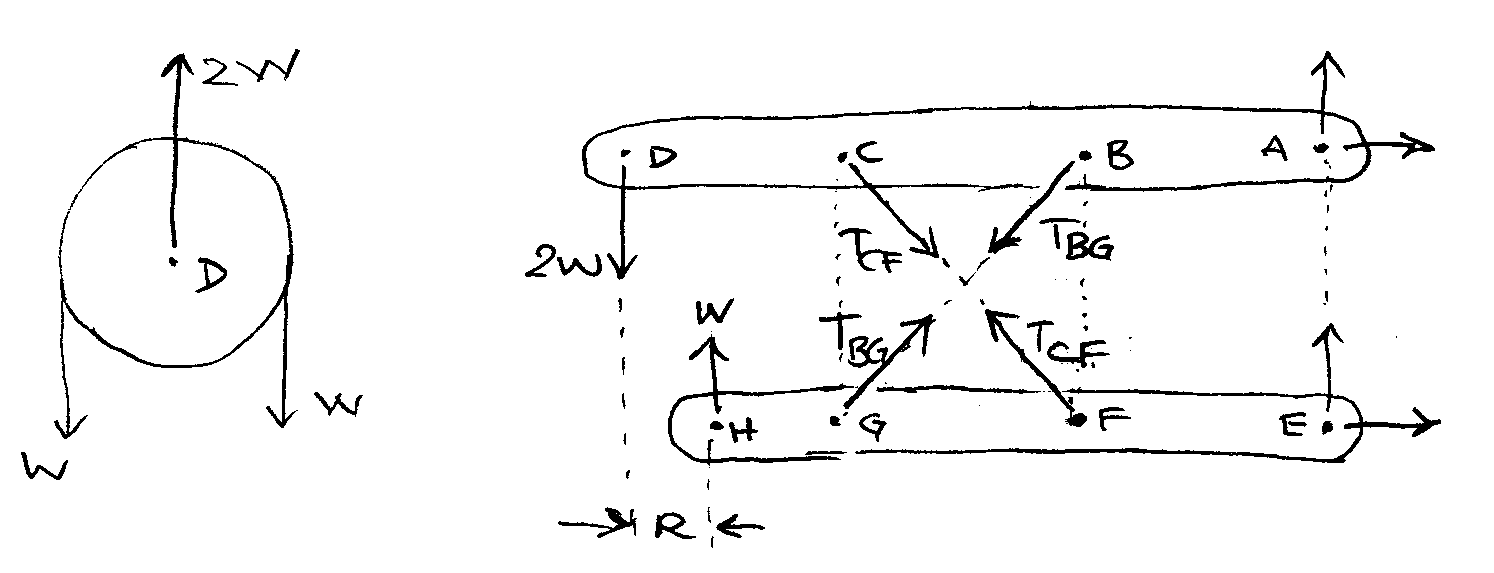 2W
D
W
W
D
C
B
A
2W
T_CF
T_BG
W
T_BG
T_CF
H
G
F
E
R